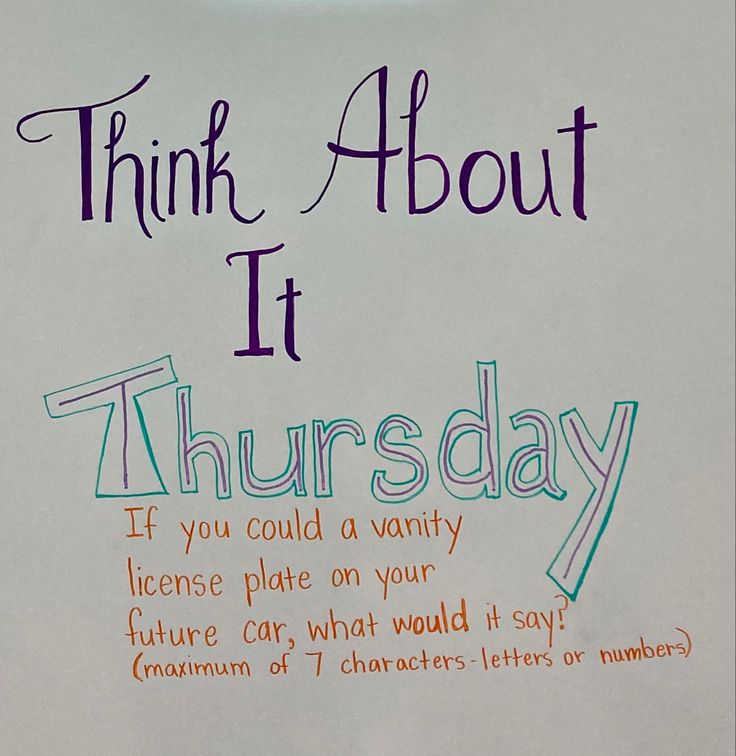 Think About
It
Thursday
If you could a vanity
license plate on your
future car, what would it say?
(maximum of 7 characters-letters or numbers)